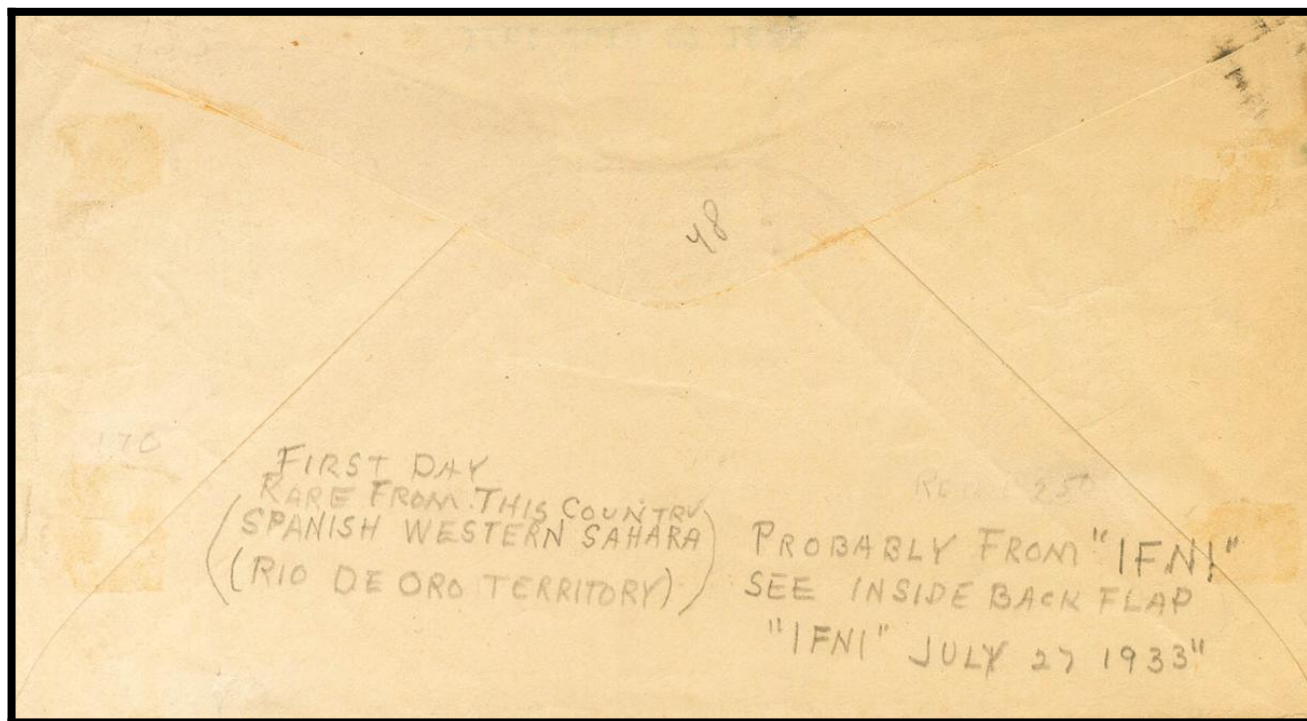 48
170
FIRST DAY
RARE FROM THIS COUNTRY
(SPANISH WESTERN SAHARA)
(RIO DE ORO TERRITORY)
PROBABLY FROM "IFNI"
SEE INSIDE BACK FLAP
"IFNI" JULY 27 1933"